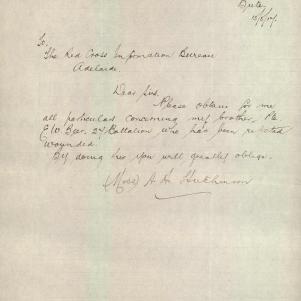 Quite,
13/8/17.
To,
The Red Cross Information Bureau
Adelaide.
Dear Sirs,
Please obtain for me
all particulars concerning my brother, Pte
E W 27 Battalion who has been reported
wounded.
By doing this you will greatly oblige.
(Miss) A M Hutchinson